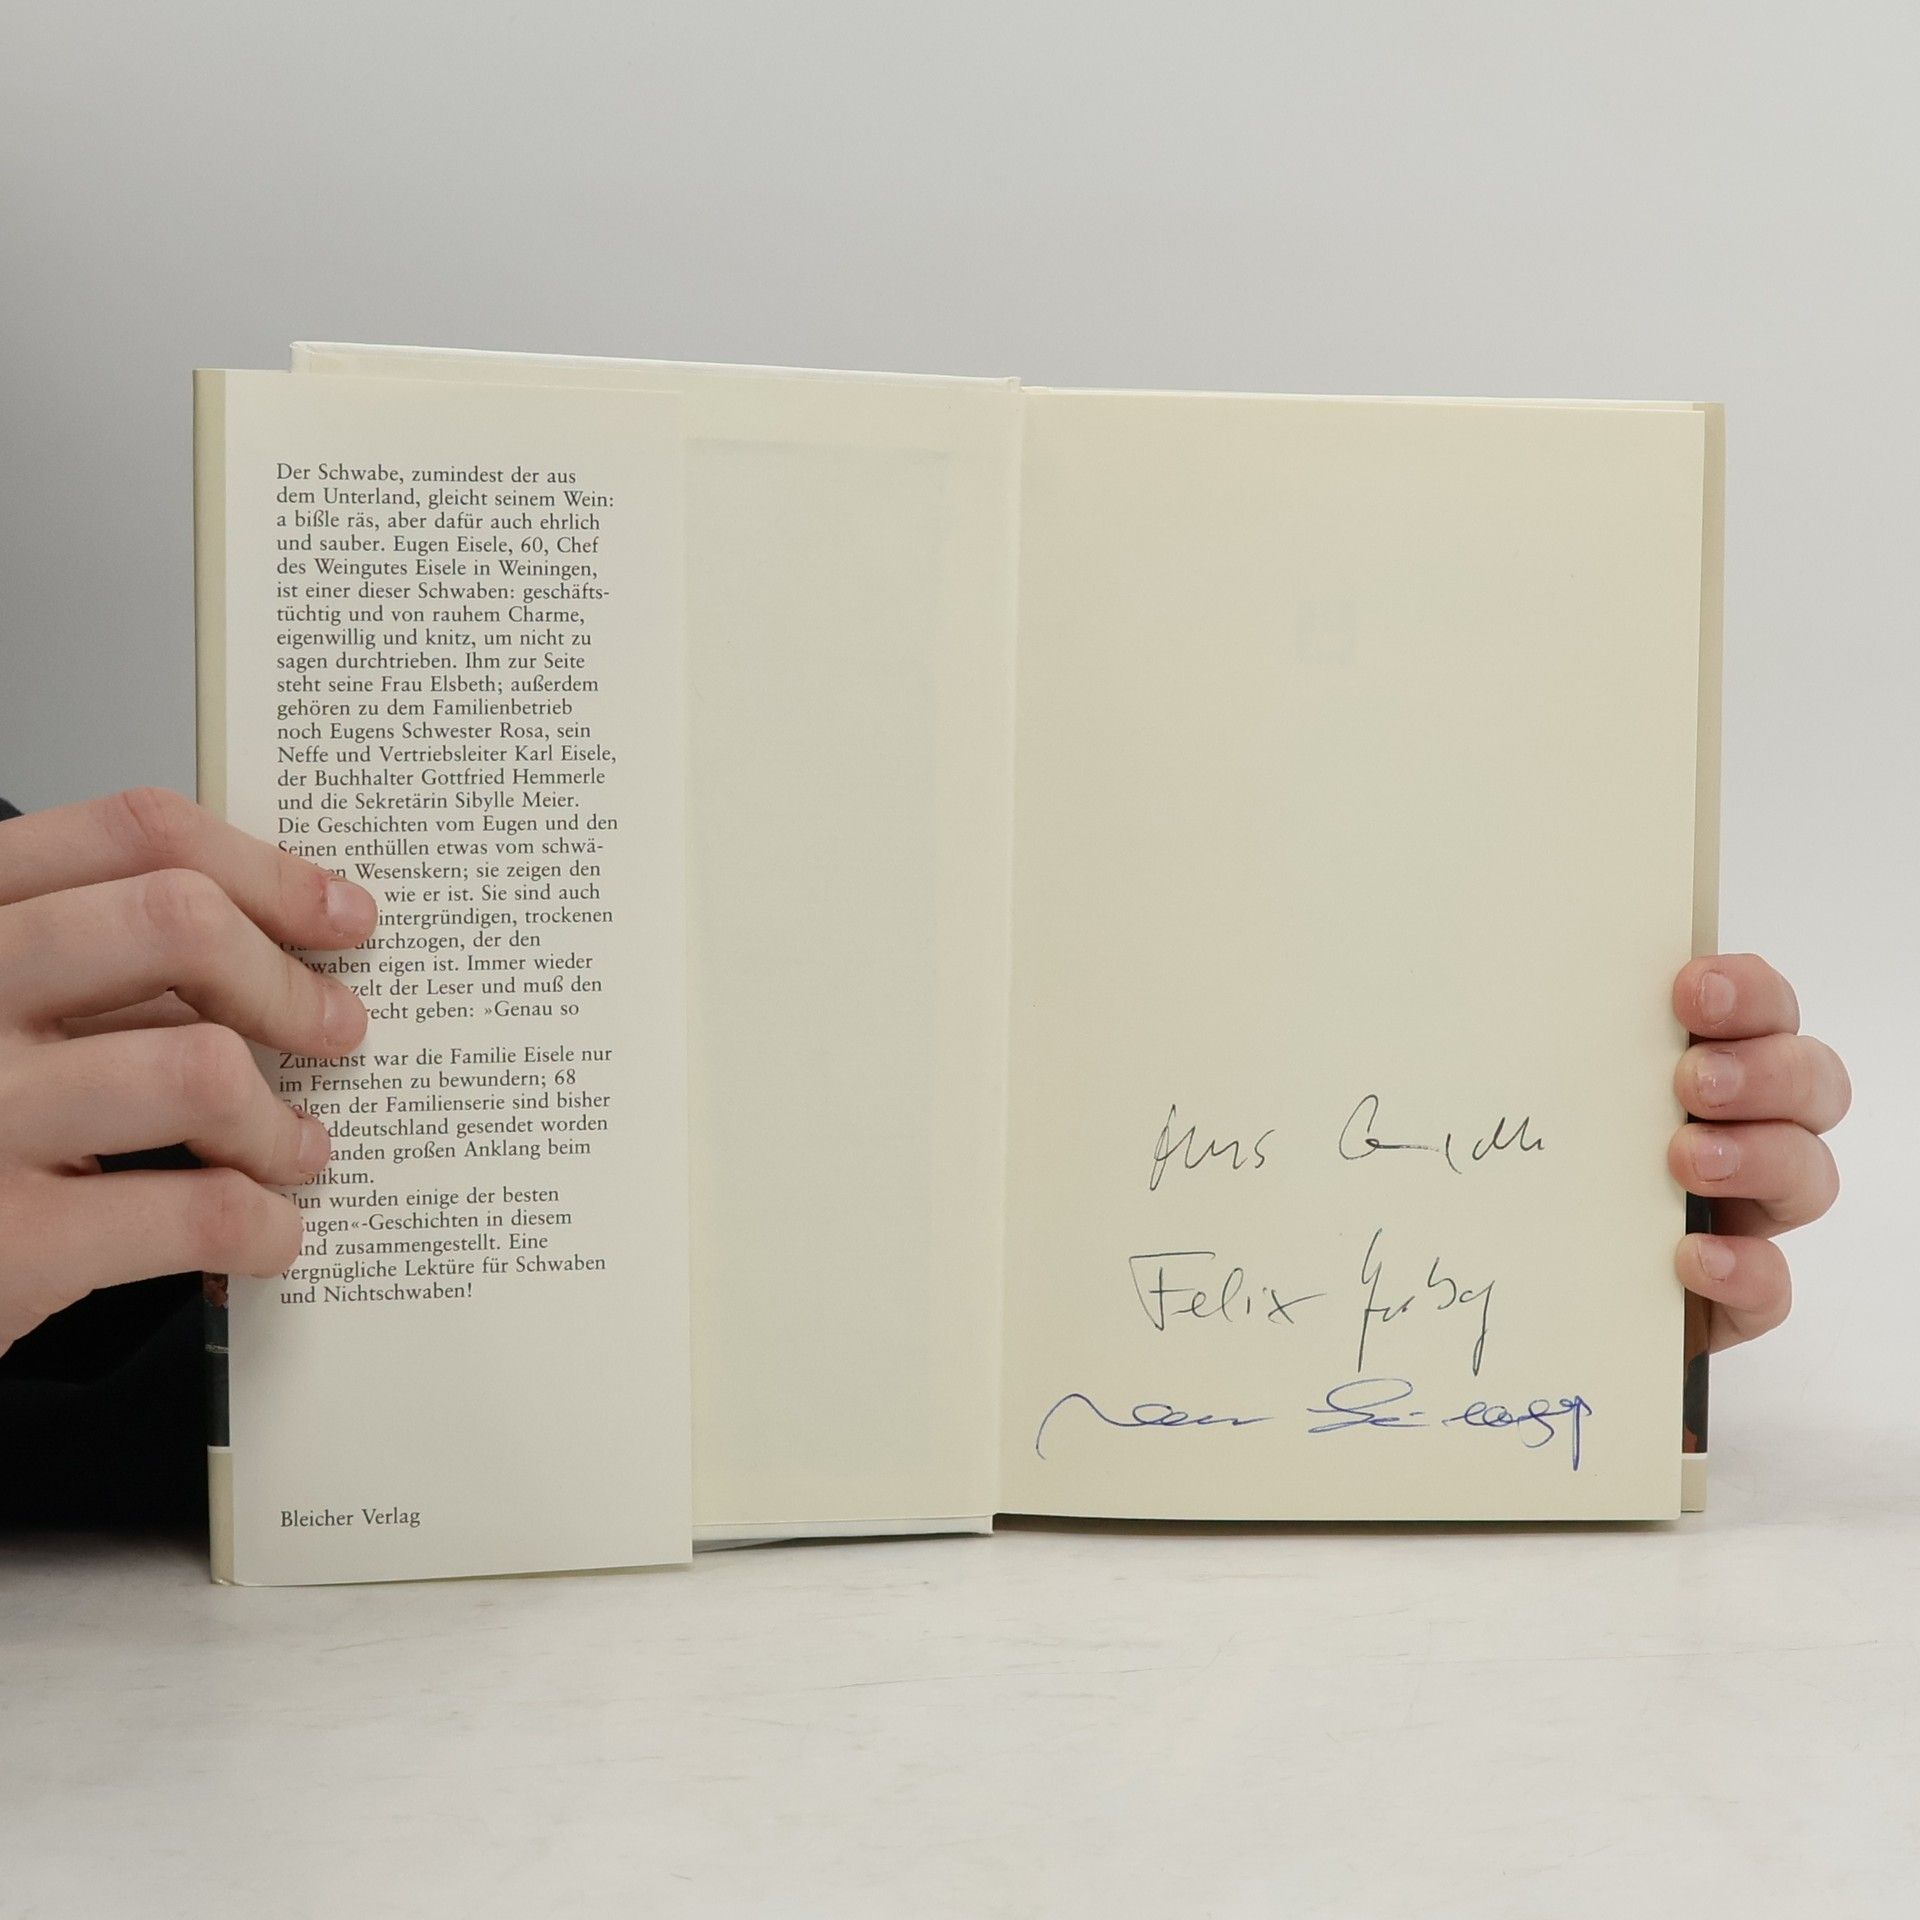 Der Schwabe, zumindest der aus
dem Unterland, gleicht seinem Wein:
a bißle räs, aber dafür auch ehrlich
und sauber. Eugen Eisele, 60, Chef
des Weingutes Eisele in Weiningen,
ist einer dieser Schwaben: geschäfts-
tüchtig und von rauhem Charme,
eigenwillig und knitz, um nicht zu
sagen durchtrieben. Ihm zur Seite
steht seine Frau Elsbeth; außerdem
gehören zu dem Familienbetrieb
noch Eugens Schwester Rosa, sein
Neffe und Vertriebsleiter Karl Eisele,
der Buchhalter Gottfried Hemmerle
und die Sekretärin Sibylle Meier.
Die Geschichten vom Eugen und den
Seinen enthüllen etwas vom schwä-
Wesenskern; sie zeigen den
wie er ist. Sie sind auch
intergründigen, trockenen
durchzogen, der den
waben eigen ist. Immer wieder
zelt der Leser und muß den
recht geben: »Genau so
Zunächst war die Familie Eisele nur
im Fernsehen zu bewundern; 68
olgen der Familienserie sind bisher
ddeutschland gesendet worden
anden großen Anklang beim
likum.
Nun wurden einige der besten
ugen«-Geschichten in diesem
and zusammengestellt. Eine
vergnügliche Lektüre für Schwaben
und Nichtschwaben!
Bleicher Verlag
Felix